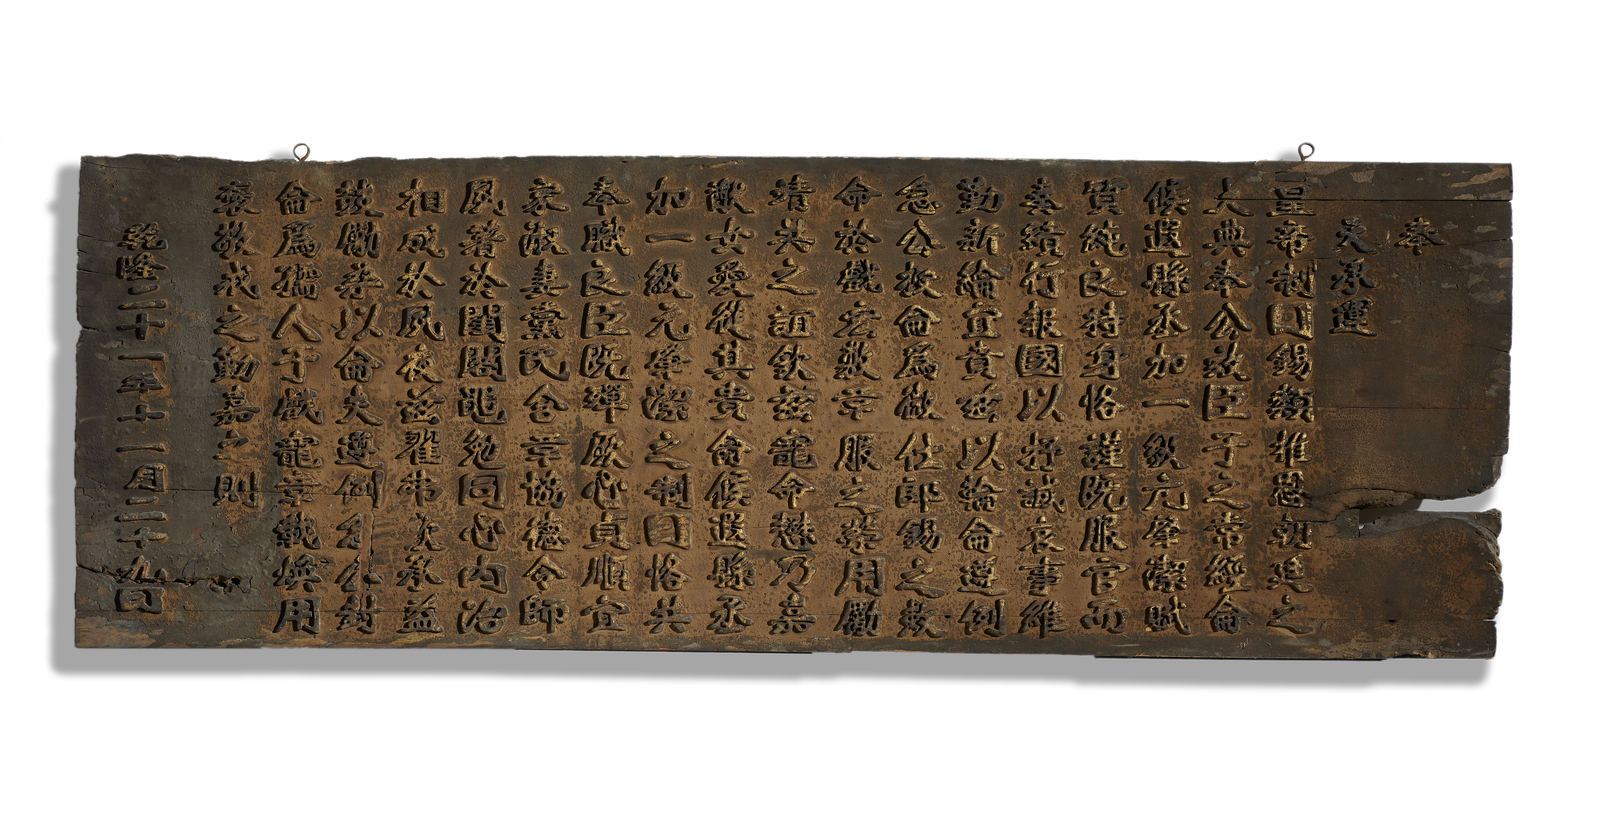 奉
天承運
皇帝制曰錫類推恩朝廷之
大典奉公效臣子之常經侖
候選縣丞加一級元肇潔賦
質純良持身恪謹既服官而
奏績行報國以抒誠衷事維
勤新綸宜賁茲以綸侖遵例
急公授侖為徵仕郎錫之敕
命於戲宏敷章服之榮用勵
靖共之誼欽茲寵命懋乃嘉
猷女愛從其貴侖候選縣丞
加一級元肇潔之制曰恪共
奉職良臣既殫厥心貞順宜
家淑妻黨民含章協德令師
夙著於閨閫黽勉同心內治
相成於夙夜茲翟茀承益
勵恭以侖夫遵例急公封
侖為孺人于戲寵章載煥用
褒敬戒之勤嘉之則
乾隆二十一年十一月二十九日